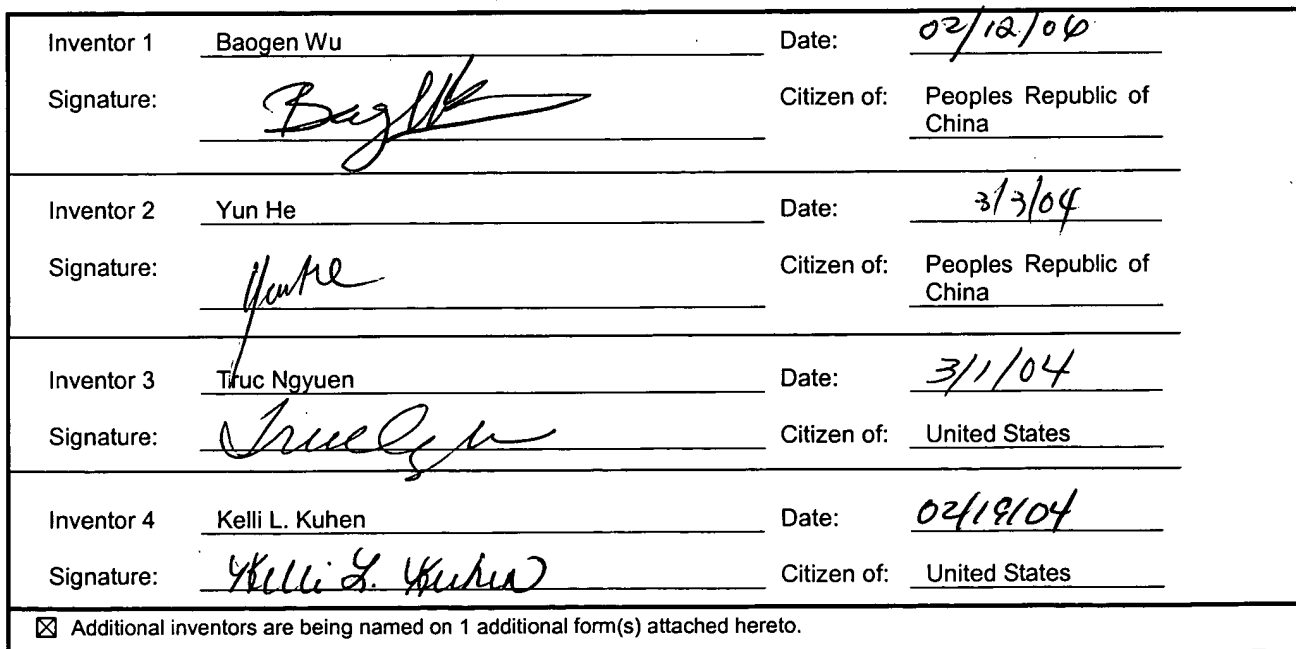 Inventor 1 Baogen Wu Date: 02/12/04
Signature: Citizen of: Peoples Republic of
China
Inventor 2 Yun He Date: 3/3/04
Signature: Yun He Citizen of: Peoples Republic of
China
Inventor 3 Truc Ngyuen Date: 3/1/04
Signature: Citizen of: United States
Inventor 4 Kelli L. Kuhen Date: 02/19/04
Signature: Kelli L. Kuhen Citizen of: United States
☒ Additional inventors are being named on 1 additional form(s) attached hereto.